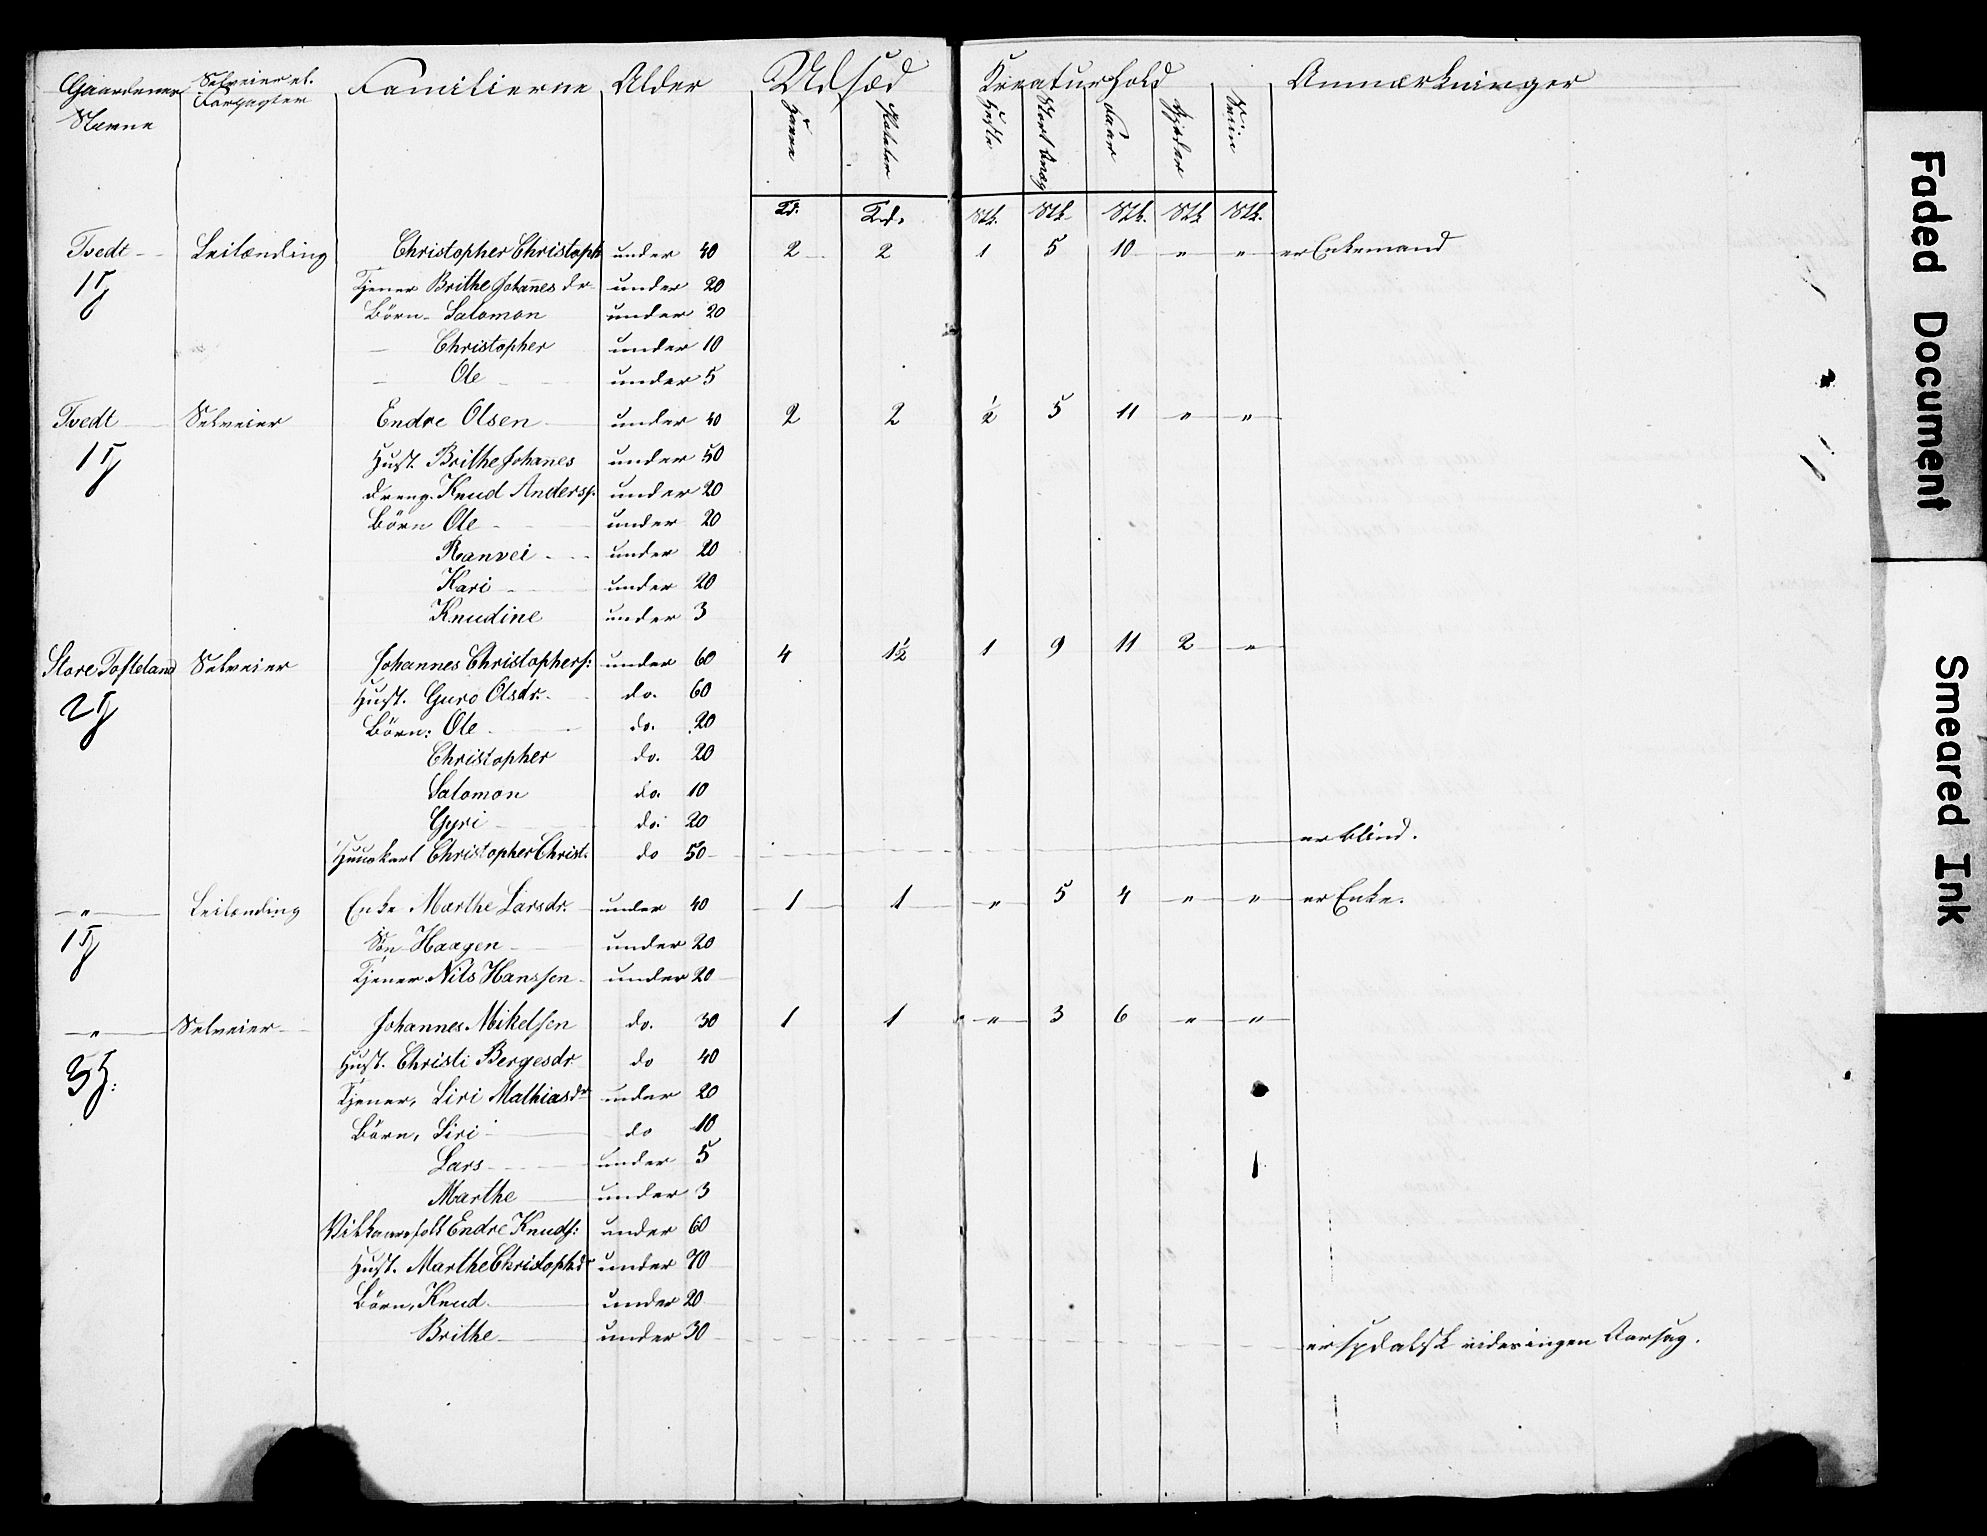 Gaardenes Selveier el. Familierne Alder Udsæd Kreaturhold Anmærkninger
Navne Forpagter
Havre Poteter Heste Stort Qvæg Faar Gjeder Sviin
Td. Td. Stk. Stk Stk. Stk Stk.
Tvedt Leilænding Christopher Christoph under 40 2 2 1 5 10 " " er Enkemand
Tjener Brithe Johannes dr under 20
Börn Salomon under 20
Christopher under 10
Ole under 5
Tvedt Selveier Endre Olsen under 40 2 2 ½ 5 11 " "
Hust. Brithe Johannes under 50
dreng. Knud Anders. under 20
Börn Ole under 20
Ranvei under 20
Kari under 20
Knudine under 3
Store Tofteland Selveier Johannes Christophers: under 60 4 1½ 1 9 11 2 "
Hust. Guro Olsdr. do. 60
Börn: Ole do. 20
Christopher do. 20
Salomon do. 10
Gyri do: 20
Christopher Christ. do 50 er blind.
" Leilænding Enke Marthe Larsdr. under 40 1 1 " 5 4 " " er Enke.
Sön Haagen under 20
Tjener Nils Hanssen under 20
" Selveier Johannes Mikelsen do. 30 1 1 " 3 6 " "
Hust. Christi Bergesdr do 40
Tjener, Siri Mathiasdr under 20
Börn, Siri do 10
Lars under 5
Marthe under 3
Vilkaarsfolk Endre Knuds: under 60
Hust. Marthe Christophdr under 70
Börn, Knud under 20
Brithe under 30 er spedalsk uden ingen Aarsag.
Faded Document
Smeared Ink